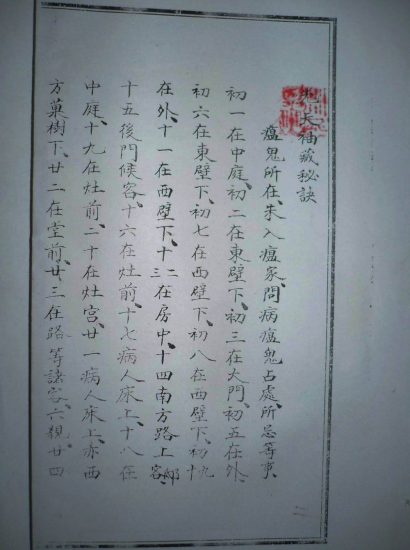 天袖藏秘訣
瘟鬼所在、未入瘟家、問病瘟鬼占處、所忌等事、
初一在中庭、初二在東壁下、初三在大門、初五在外、
初六在東壁下、初七在西壁下、初八在西壁下、初九十
在外、十一在西壁下、十二三在房中、十四南方路上客、
十五後門候客、十六在灶前、十七病人床上、十八在
中庭、十九在灶前、二十在灶宮、廿一病人床上、亦西
方菓樹下、廿二在堂前、廿三在路等諸客、六親、廿四